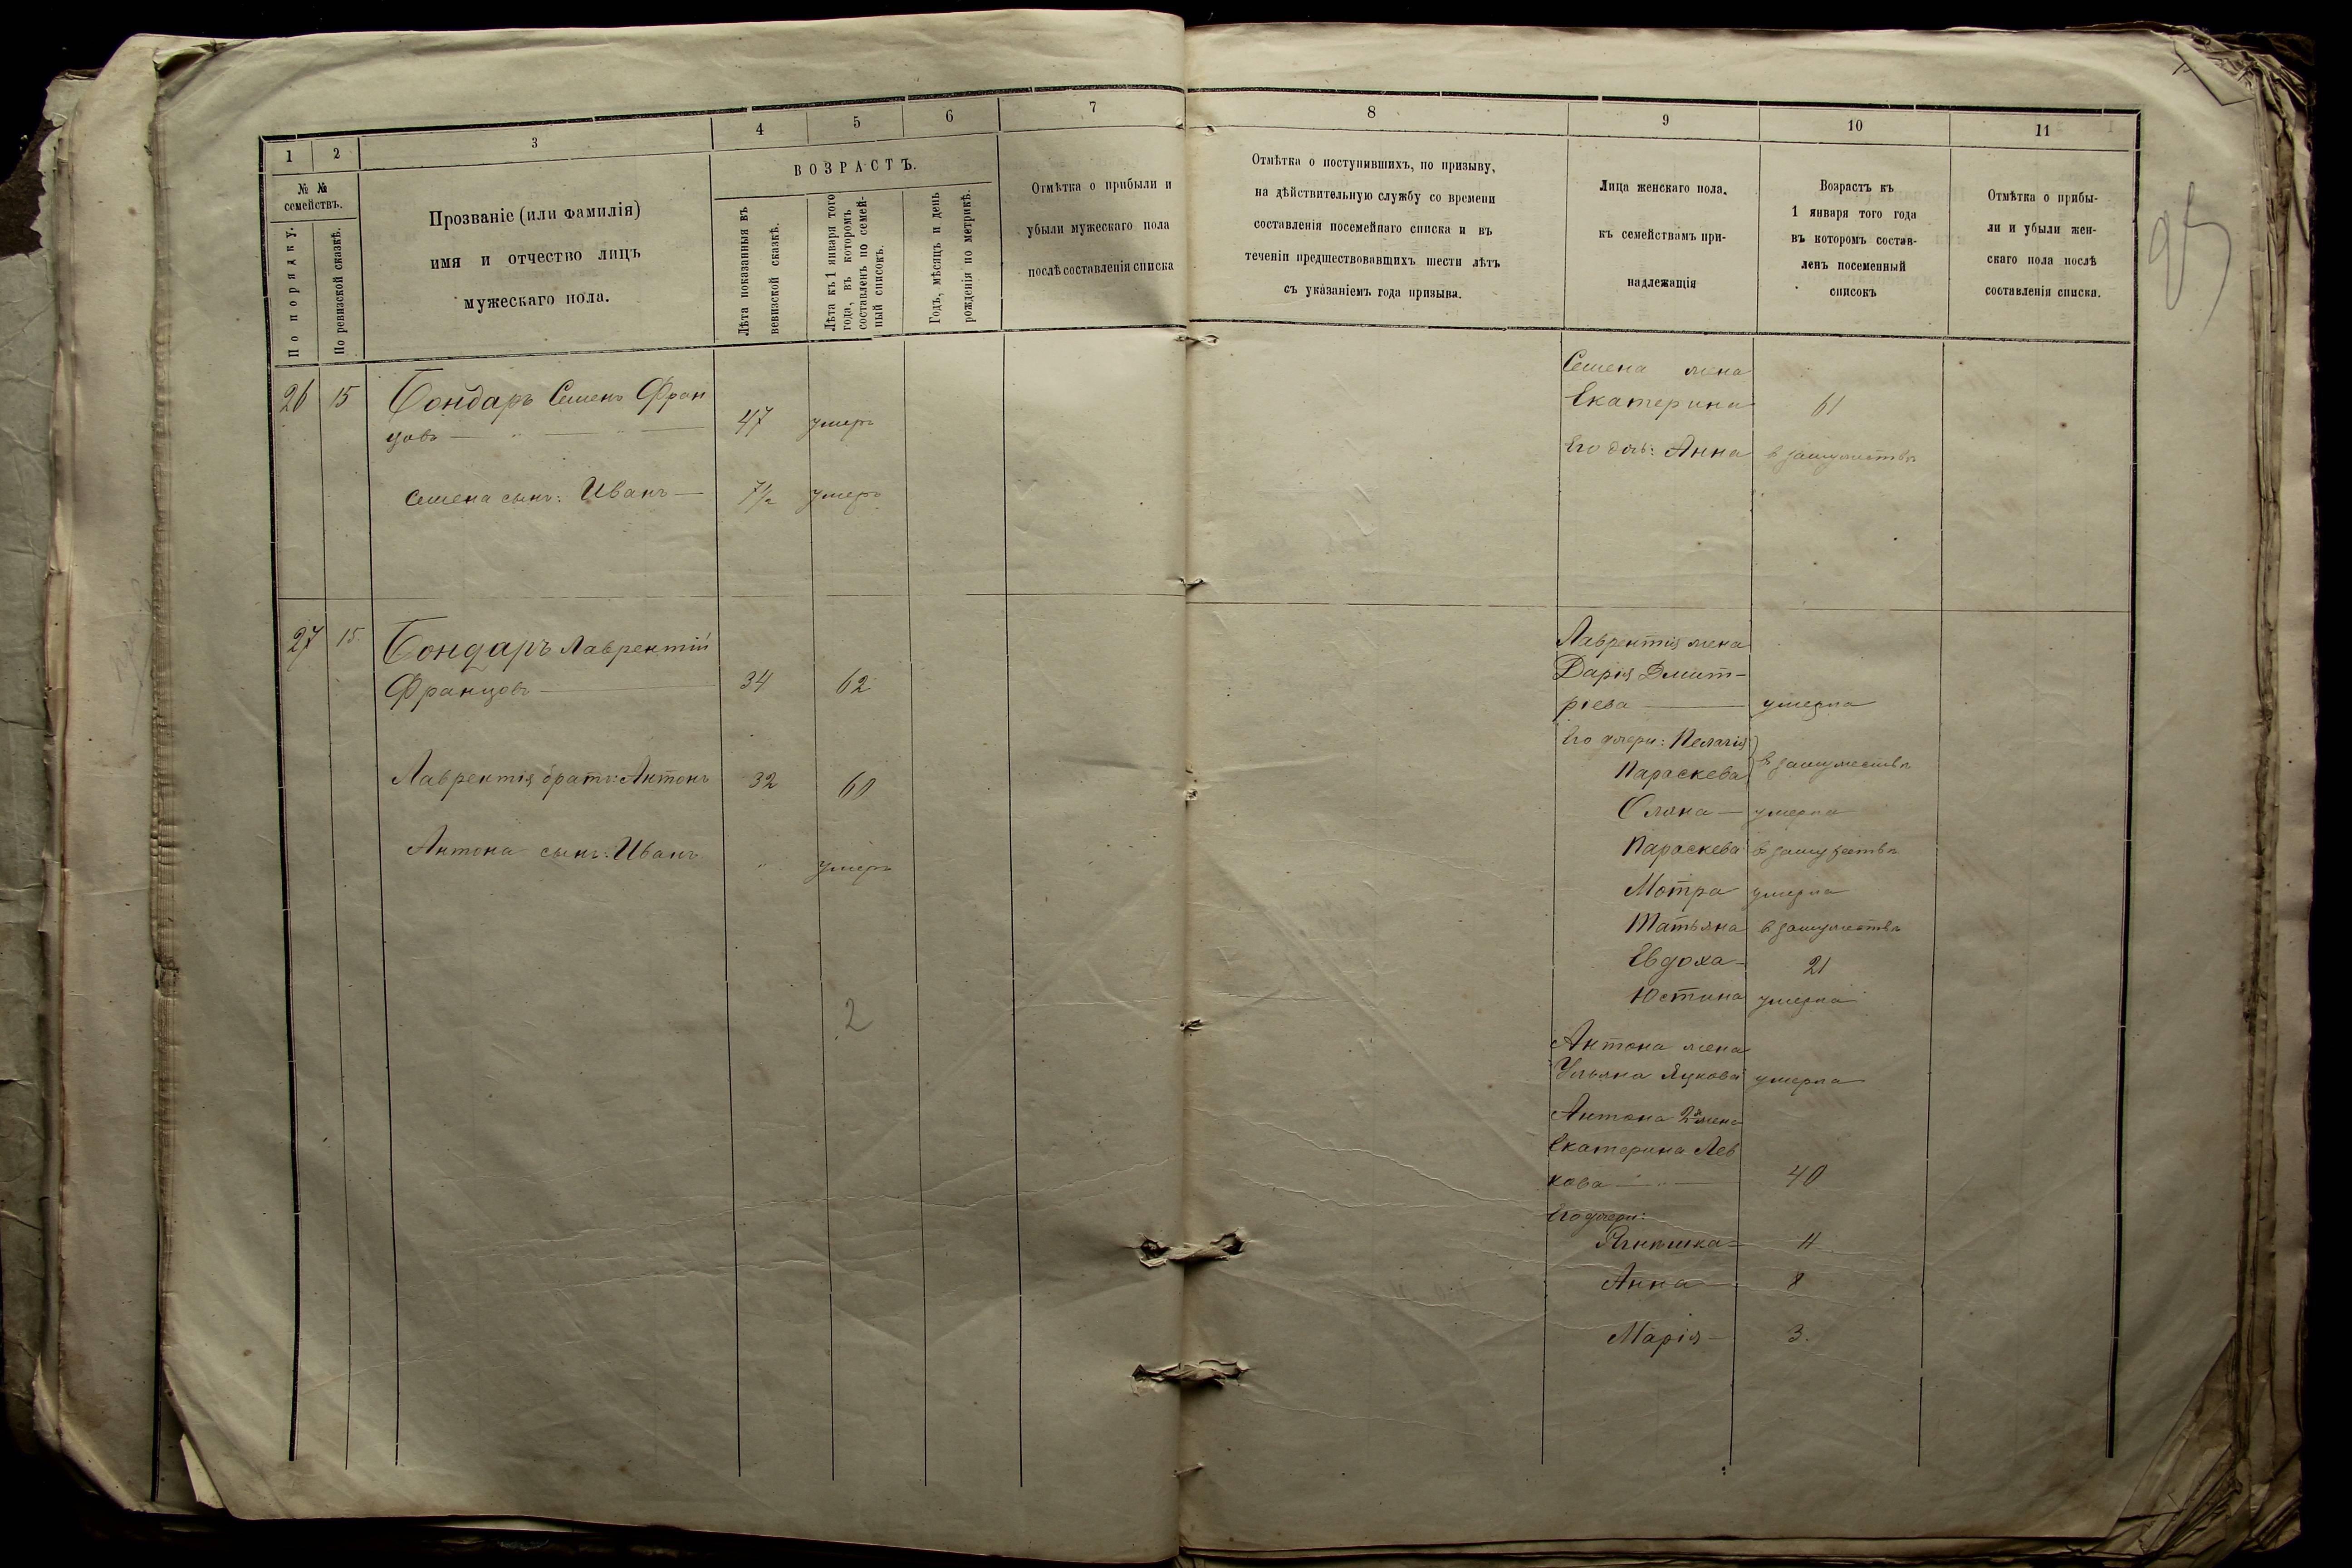 1
2
3
4
5
6
7
№ №
семействъ.
По порядку.
По ревизской сказкѣ.
Прозваніе (или фамилія)
имя и отчество лицъ
мужескаго пола.
ВОЗРАСТЪ.
Лѣта показанныя въ
ревизской сказкѣ.
Лѣта къ 1 января того
года, въ которомъ
составленъ по семей-
ный списокъ.
Годъ, мѣсяцъ и день
рожденія по метрикѣ.
Отмѣтка о прибыли и
убыли мужескаго пола
послѣ составленія списка
26 15 Бондаръ Семенъ Фран
цовъ 47 умеръ
Семена сынъ: Иванъ 7½ умеръ
27 15. Бондаръ Лаврентій
Францовъ 34 62
Лаврентія братъ: Антонъ 32 60
Антона сынъ: Иванъ " умеръ
2
8
9
10
11
Отмѣтка о поступившихъ, по призыву,
на дѣйствительную службу со времени
составленія посемейнаго списка и въ
теченіи предшествовавшихъ шести лѣтъ
съ указаніемъ года призыва.
Лица женскаго пола.
къ семействамъ при-
надлежащія
Возрастъ къ
1 января того года
въ которомъ состав-
ленъ посеменный
списокъ
Отмѣтка о прибы-
ли и убыли жен-
скаго пола послѣ
составленія списка.
95
Семена жена
Екатерина 61
Его дочь: Анна в замужествѣ
Лаврентія жена
Дарія Дмит-
ріева умерла
Его дочери: Пелагія
Параскева в замужествѣ
Оляна умерла
Параскева в замужествѣ
Мотра умерла
Татьяна в замужествѣ
Евдоха 21
Юстина умерла
Антона жена
Ульяна Яцкова умерла
Антона 2я жена
Екатерина Лев
кова 40
Его дочери:
11
Анна 8
Марія 3.